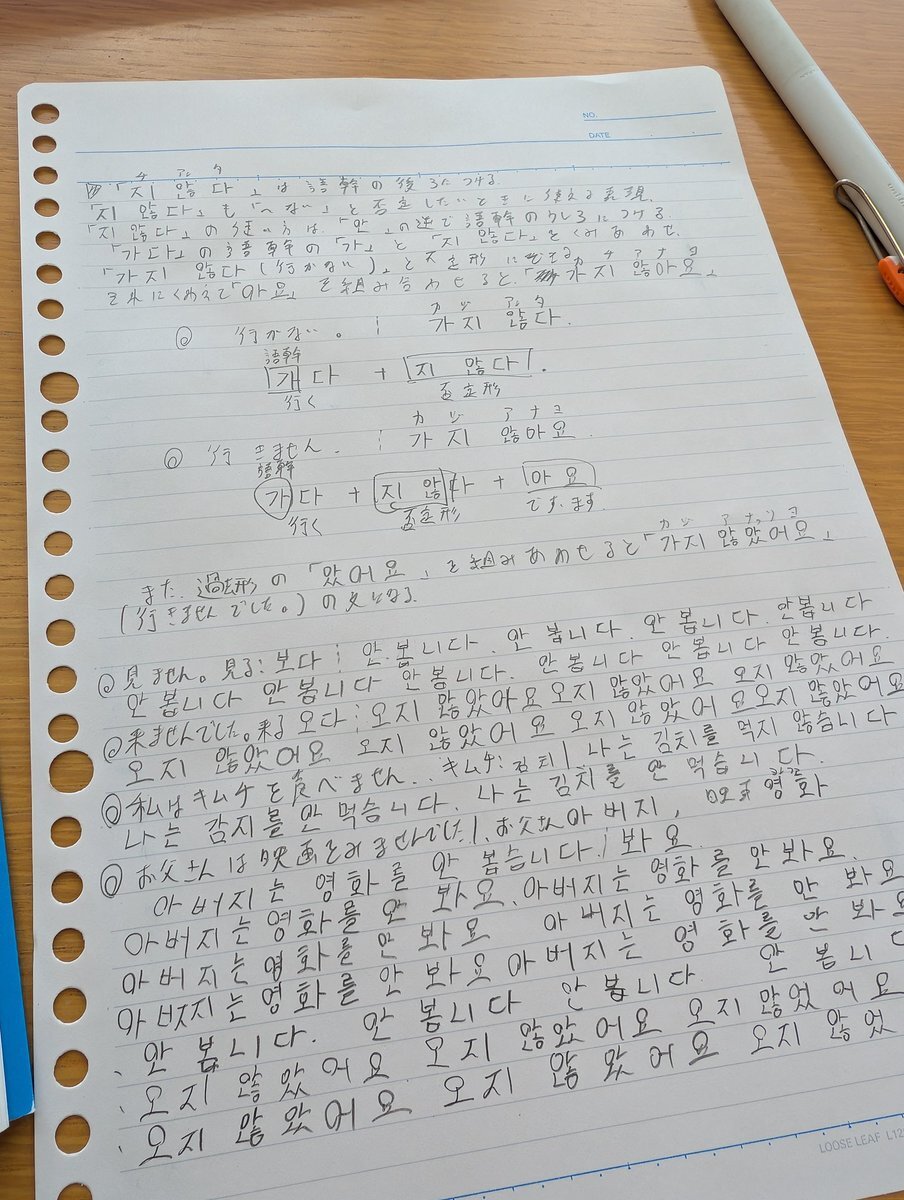 NO.
DATE
チ アン タ
「지 않다」は語幹の後ろにつける.
「지 않다」も「〜ない」と否定したいときに使える表現.
「지 않다」の使い方は、「안」の逆で語幹のうしろにつける.
「가다」の語幹の「가」と「지 않다」をくみあわせ
「가지 않다(行かない)」と否定形にできる
チ アナヨ
それにくわえて「아요」を組み合わせると、「가지 않아요」
カ ジ アンタ
◎ 行かない。; 가지 않다.
語幹
가다 + 지 않다.
行く 否定形
カ ジ アナヨ
◎ 行きません. ; 가지 않아요
語幹
가다 + 지 않다 + 아요
行く 否定形 です、ます
カ ジ アナッソヨ
また、過去形の「았어요」を組みあわせると「가지 않았어요」
(行きませんでした。)の文となる.
◎見ません。見る:보다; 안 봅니다. 안 봅니다. 안 봅니다. 안봅니다
안 봅니다 안 봅니다 안 봅니다. 안봅니다 안봅니다 안 봅니다.
◎来ませんでした。来る 오다; 오지 않았아요 오지 않았어요 오지 않았어요
오지 않았어요 오지 않았어요 오지 않았어 요오지 않았어요
◎私はキムチを食べません.. キムチ:김치|. 나는 김치를 먹지 않습니다
나는 감지를 안 먹습니다. 나는 김치를 안 먹습니다.
◎お父さんは映画をみませんでした|. お父さん 아버지, 映画 영화
아버지는 영화를 안 봅습니다.; 봐요.
아버지는 영화를 안 봐요. 아버지는 영화를 안 봐요.
아버지는 영화를 안 봐요 아버지는 영화를 안 봐요
아버지는 영화를 안 봐요 아버지는 영화를 안 봐요
안 봅니다. 안 봅니다 안 봅니다. 안 봅니다
오지 않았어요 오지 않았어요 오지 않었어요
오지 않았어요 오지 않았어요 오지 않었
LOOSE LEAF